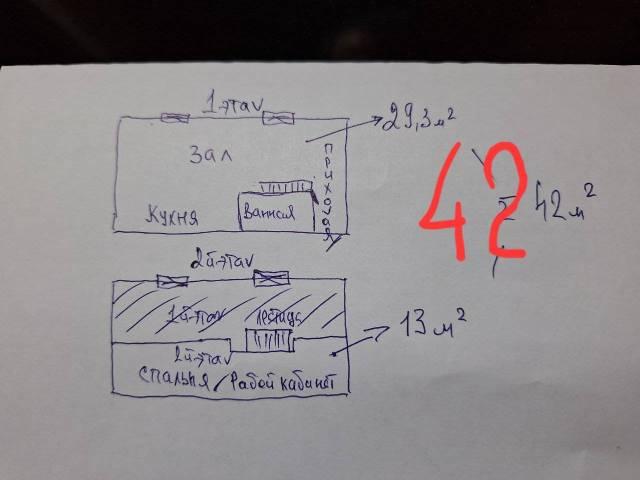 1-этаж
29,3 м²
Зал
Прихожая
Кухня
Ванная
42
42 м²
2й-этаж
1й-этаж
13 м²
2й-этаж
Спальня/Рабой кабинет